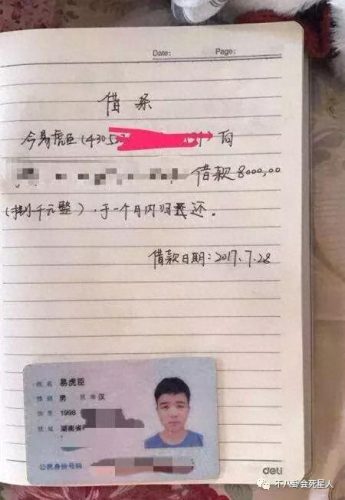 Date: Page:
借条
今易虎臣(430 向
借款8000.00
(捌千元整),于一个月内归还。
借款日期:2017.7.28
姓名 易虎臣
性别 男 民族 汉
出生 1998
住址 湖南省
公民身份号码
deli
不八卦会死星人